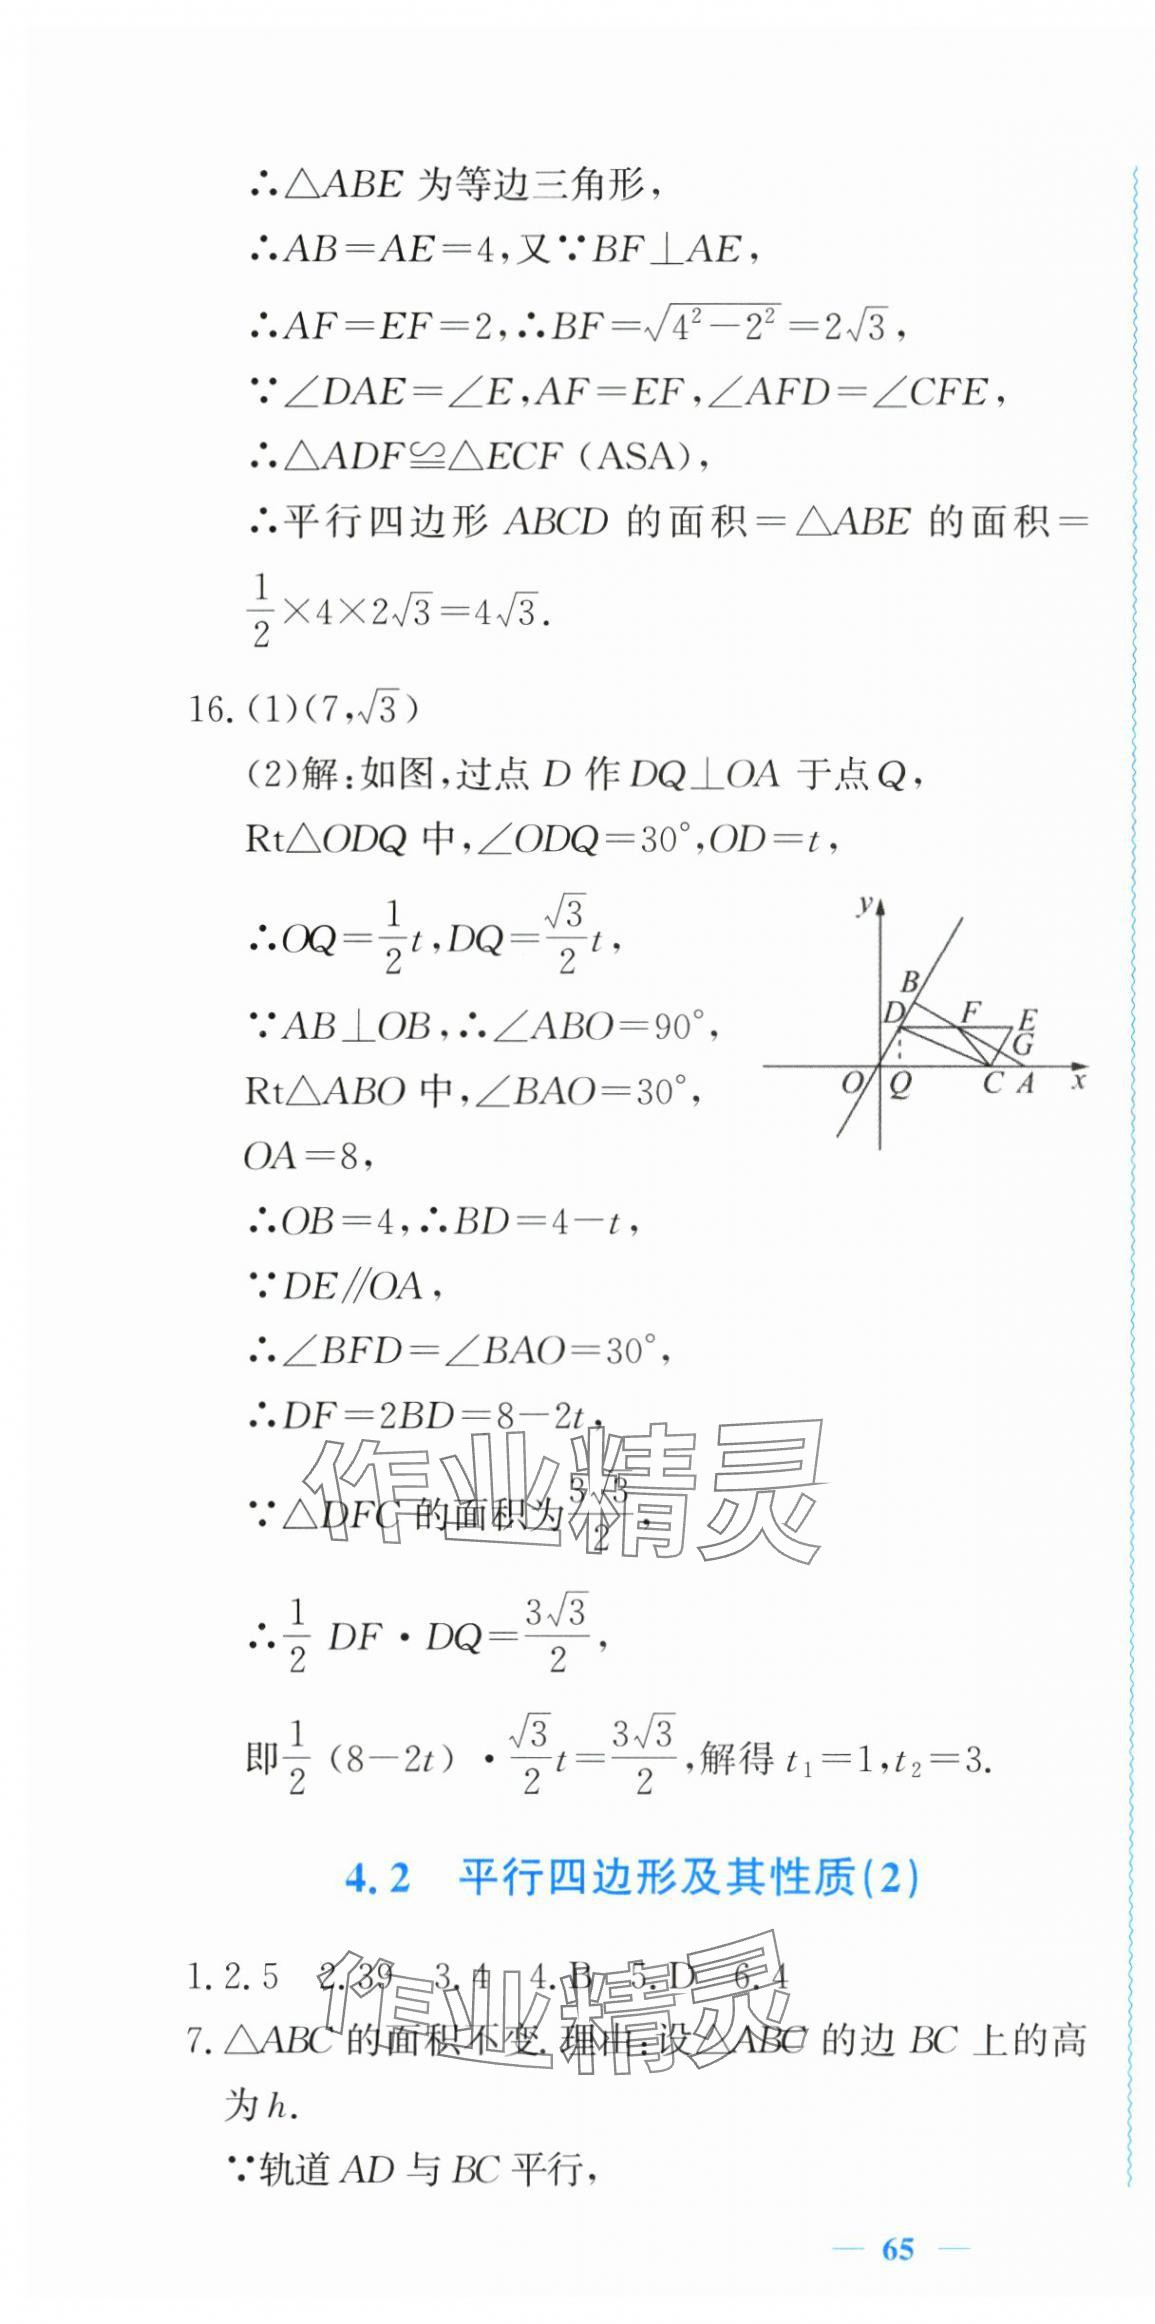 ∴△ABE 为等边三角形,
∴AB=AE=4,又∵BF⊥AE,
∴AF=EF=2,∴BF=√(4²-2²)=2√3,
∵∠DAE=∠E,AF=EF,∠AFD=∠CFE,
∴△ADF≌△ECF(ASA),
∴平行四边形 ABCD 的面积=△ABE 的面积=
1/2×4×2√3=4√3.
16.(1)(7,√3)
(2)解:如图,过点 D 作 DQ⊥OA 于点 Q,
Rt△ODQ 中,∠ODQ=30°,OD=t,
∴OQ=1/2t,DQ=√3/2t,
∵AB⊥OB,∴∠ABO=90°,
Rt△ABO 中,∠BAO=30°,
OA=8,
y
B
D F E
G
O Q C A x
∴OB=4,∴BD=4-t,
∵DE∥OA,
∴∠BFD=∠BAO=30°,
∴DF=2BD=8-2t,
作业精灵
∵△DFC 的面积为3√3/2,
∴1/2 DF·DQ=3√3/2,
即1/2(8-2t)·√3/2t=3√3/2,解得 t₁=1,t₂=3.
4.2 平行四边形及其性质(2)
1.2.5 2.39 3.4 4.B 5.D 6.4
作业精灵
7.△ABC 的面积不变.理由:设△ABC 的边 BC 上的高
为 h.
∵轨道 AD 与 BC 平行,
— 65 —